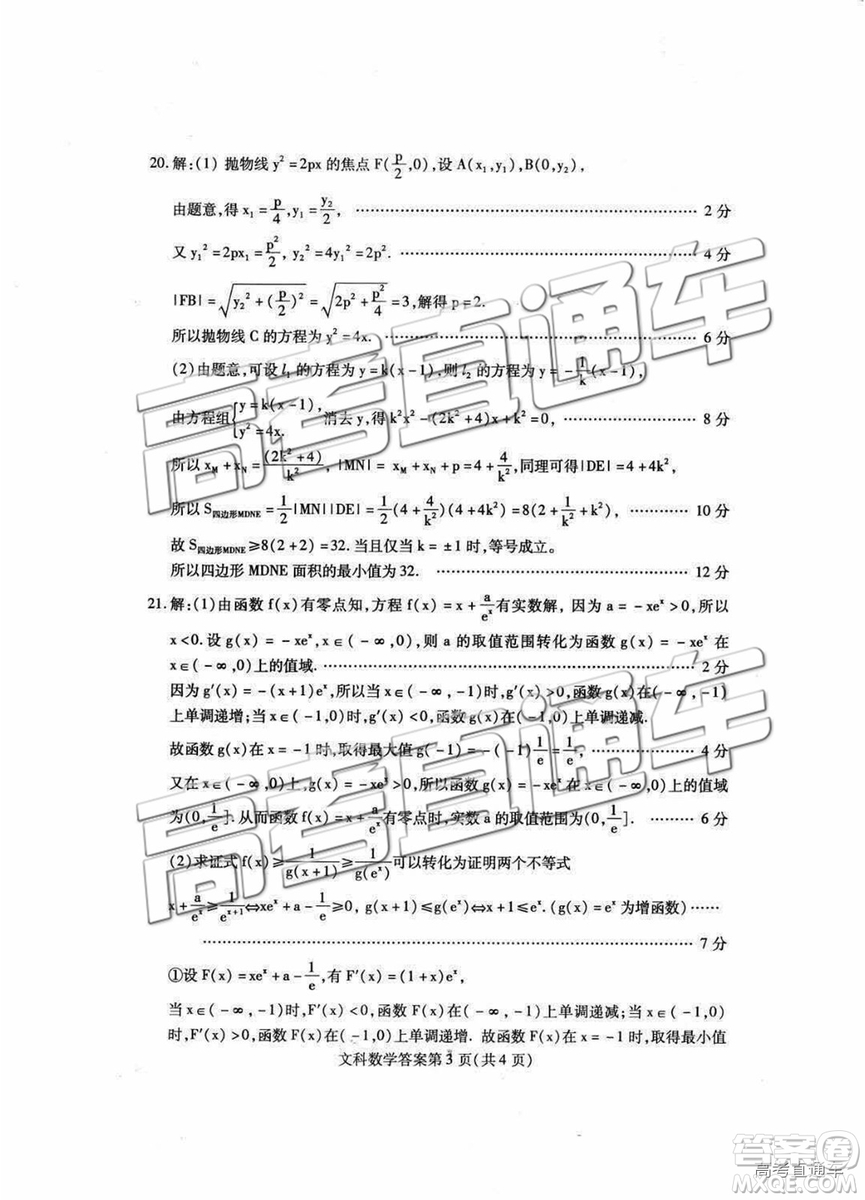 20. 解:(1) 抛物线 y²=2px 的焦点 F(p/2,0),设 A(x₁,y₁),B(0,y₂),
由题意,得 x₁=p/4,y₁=y₂/2, …… 2 分
又 y₁²=2px₁=p²/2, y₂²=4y₁²=2p². …… 4 分
|FB|=√(y₂²+(p/2)²)=√(2p²+p²/4)=3,解得 p=2.
所以抛物线 C 的方程为 y²=4x. …… 6 分
(2)由题意,可设 l₁ 的方程为 y=k(x-1),则 l₂ 的方程为 y=-1/k(x-1),
由方程组{y=k(x-1), y²=4x. 消去 y,得 k²x²-(2k²+4)x+k²=0, …… 8 分
所以 x_M+x_N=(2k²+4)/k², |MN|=x_M+x_N+p=4+4/k²,同理可得|DE|=4+4k²,
所以 S四边形MDNE=1/2|MN||DE|=1/2(4+4/k²)(4+4k²)=8(2+1/k²+k²), …… 10 分
故 S四边形MDNE≥8(2+2)=32. 当且仅当 k=±1 时,等号成立。
所以四边形 MDNE 面积的最小值为 32. …… 12 分
21. 解:(1)由函数 f(x)有零点知,方程 f(x)=x+a/eˣ有实数解, 因为 a=-xeˣ>0,所以
x<0. 设 g(x)=-xeˣ,x∈(-∞,0),则 a 的取值范围转化为函数 g(x)=-xeˣ 在
x∈(-∞,0)上的值域. …… 2 分
因为 g′(x)=-(x+1)eˣ,所以当 x∈(-∞,-1)时,g′(x)>0,函数 g(x)在(-∞,-1)
上单调递增;当 x∈(-1,0)时,g′(x)<0,函数 g(x)在(-1,0)上单调递减.
故函数 g(x)在 x=-1 时,取得最大值 g(-1)=-(-1)1/e=1/e, …… 4 分
又在 x∈(-∞,0)上,g(x)=-xeˣ>0,所以函数 g(x)在 x∈(-∞,0)上的值域
为(0,1/e]. 从而函数 f(x)=x+a/eˣ有零点时,实数 a 的取值范围为(0,1/e]. …… 6 分
(2)求证式 f(x)≥1/g(x+1)≥1/g(eˣ)可以转化为证明两个不等式
x+a/eˣ≥1/eˣ⁺¹⇔xeˣ+a-1/e≥0, g(x+1)≤g(eˣ)⇔x+1≤eˣ.(g(x)=eˣ 为增函数)……
…… 7 分
①设 F(x)=xeˣ+a-1/e,有 F′(x)=(1+x)eˣ,
当 x∈(-∞,-1)时,F′(x)<0,函数 F(x)在(-∞,-1)上单调递减;当 x∈(-1,0)
时,F′(x)>0,函数 F(x)在(-1,0)上单调递增. 故函数 F(x)在 x=-1 时,取得最小值
文科数学答案第 3 页(共 4 页)
高考直通车
高考直通车
答案圈
高考直通车
MXQE.COM